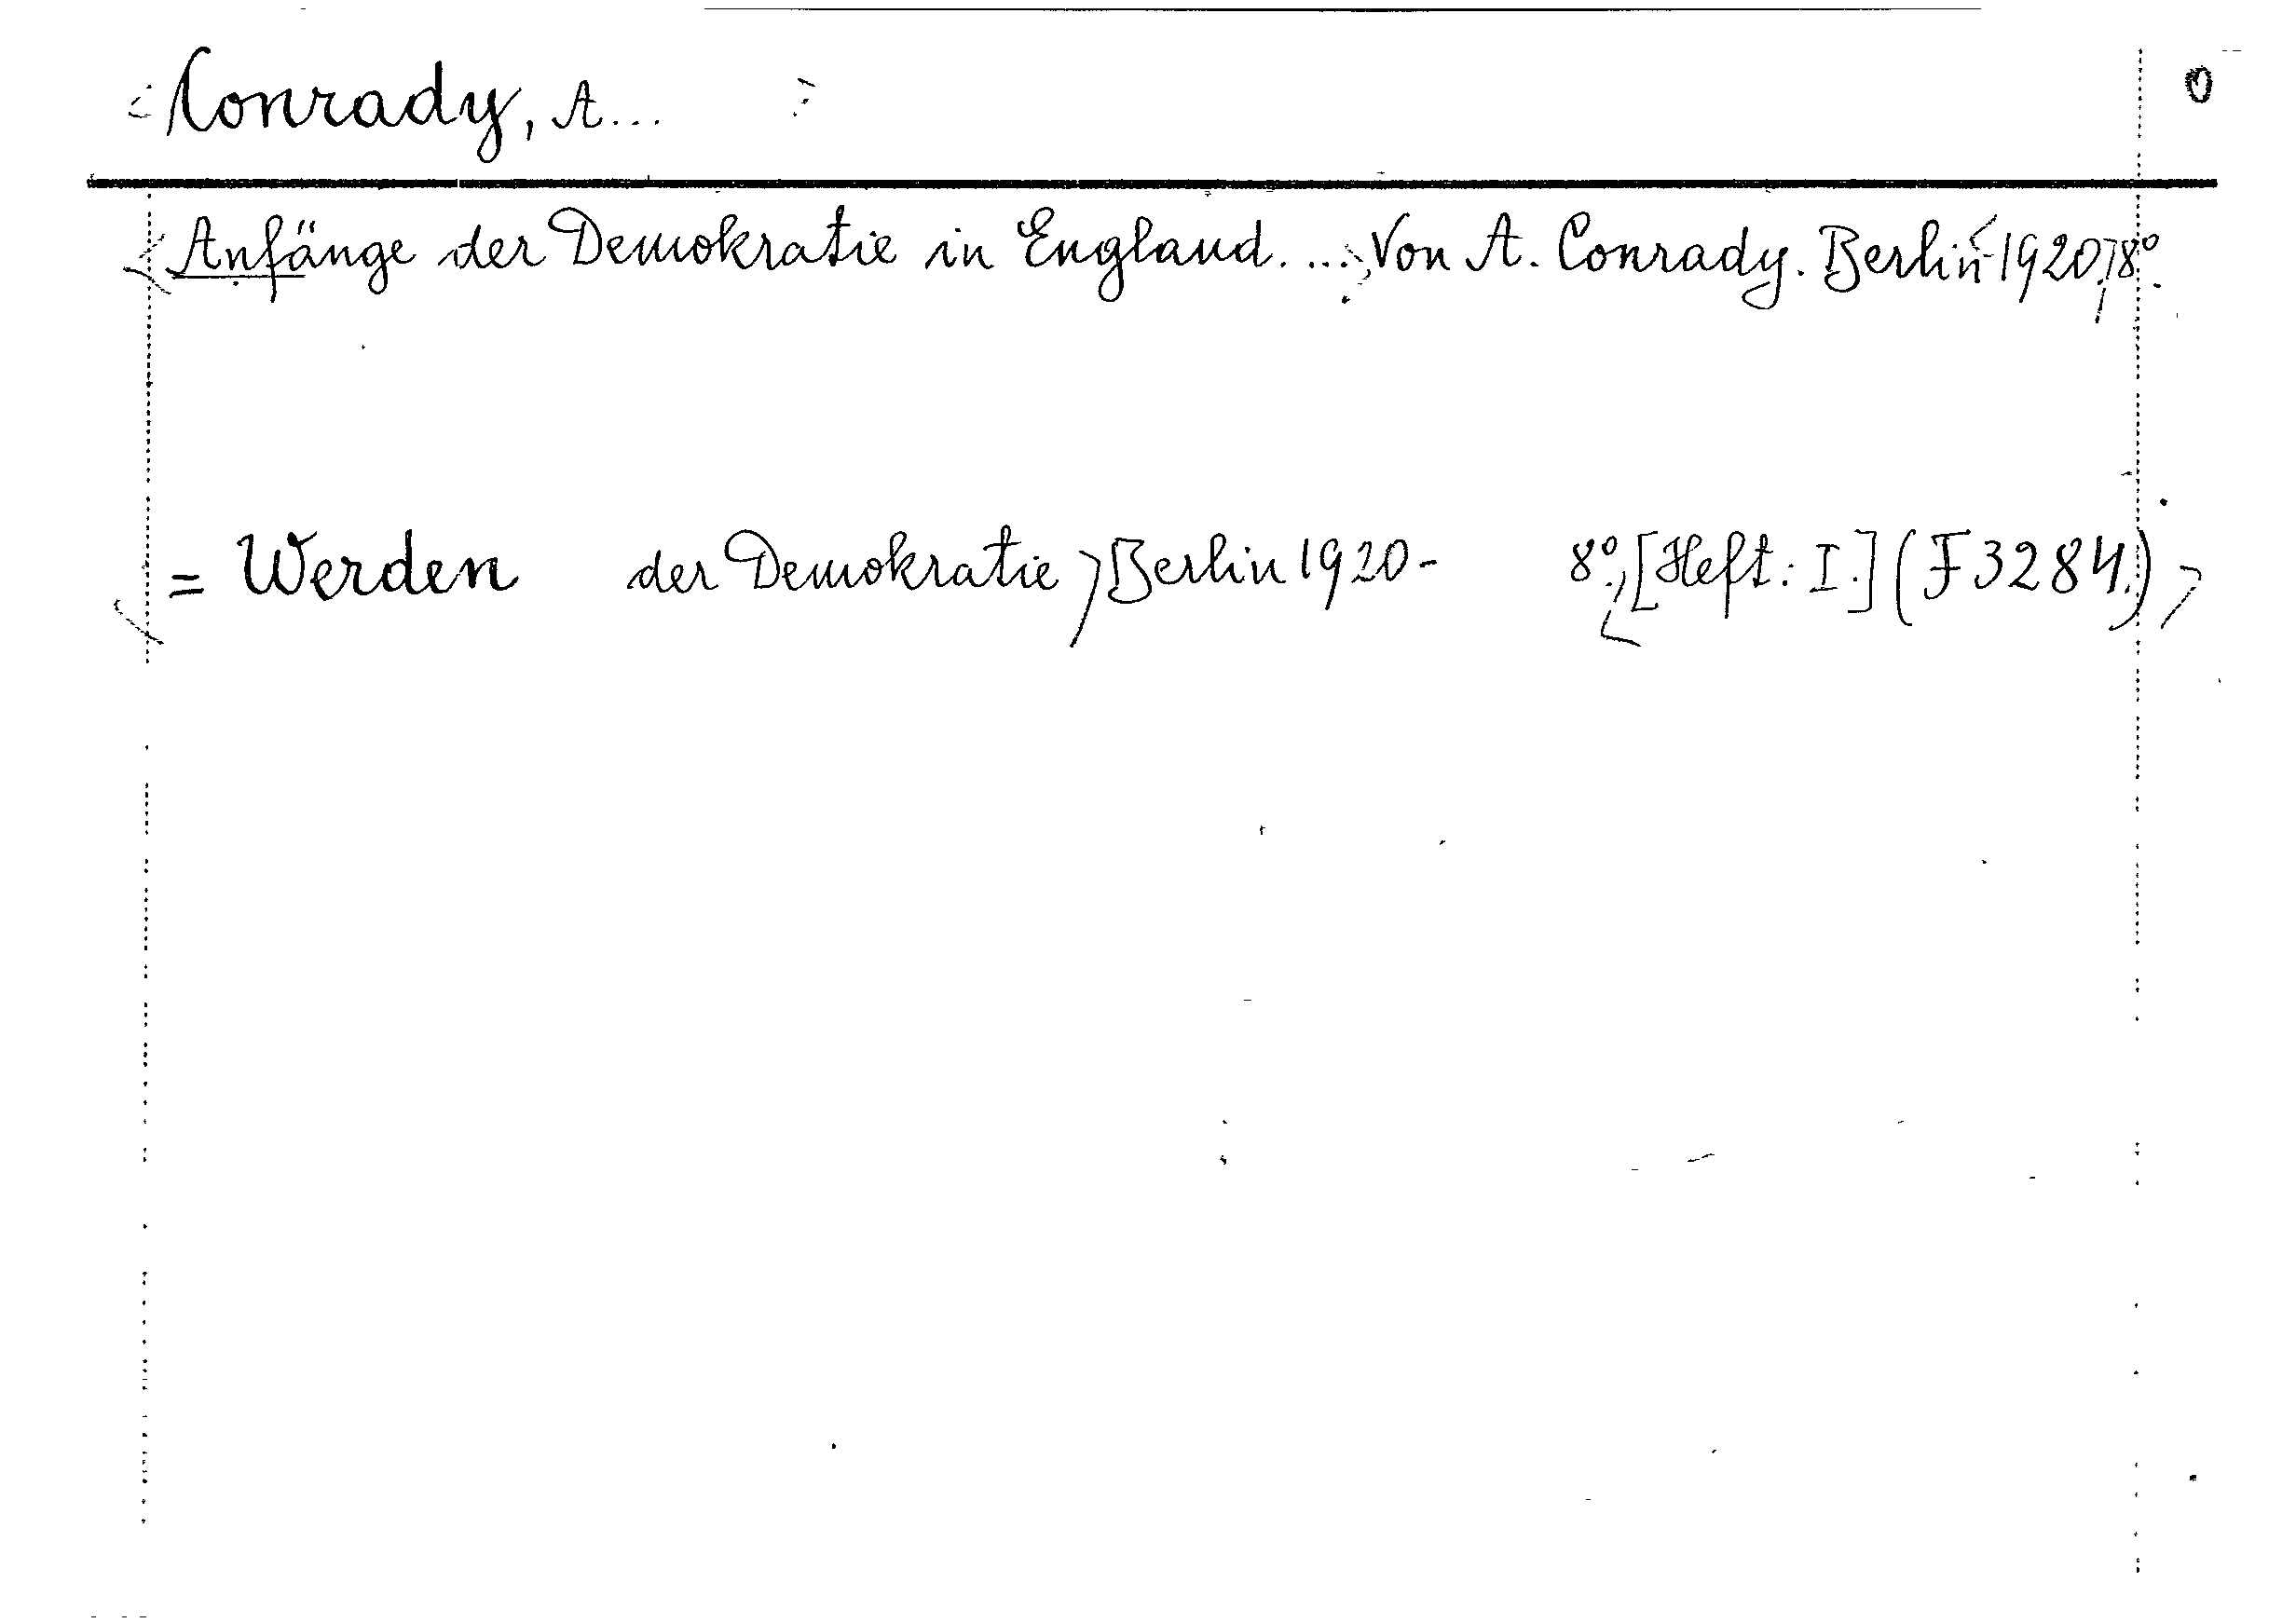 Conrady, A... 0
Anfänge der Demokratie in England. ... Von A. Conrady. Berlin 1920. 8°.
= Werden der Demokratie, Berlin 1920- 8°, [Heft: I.] (F 3284.)